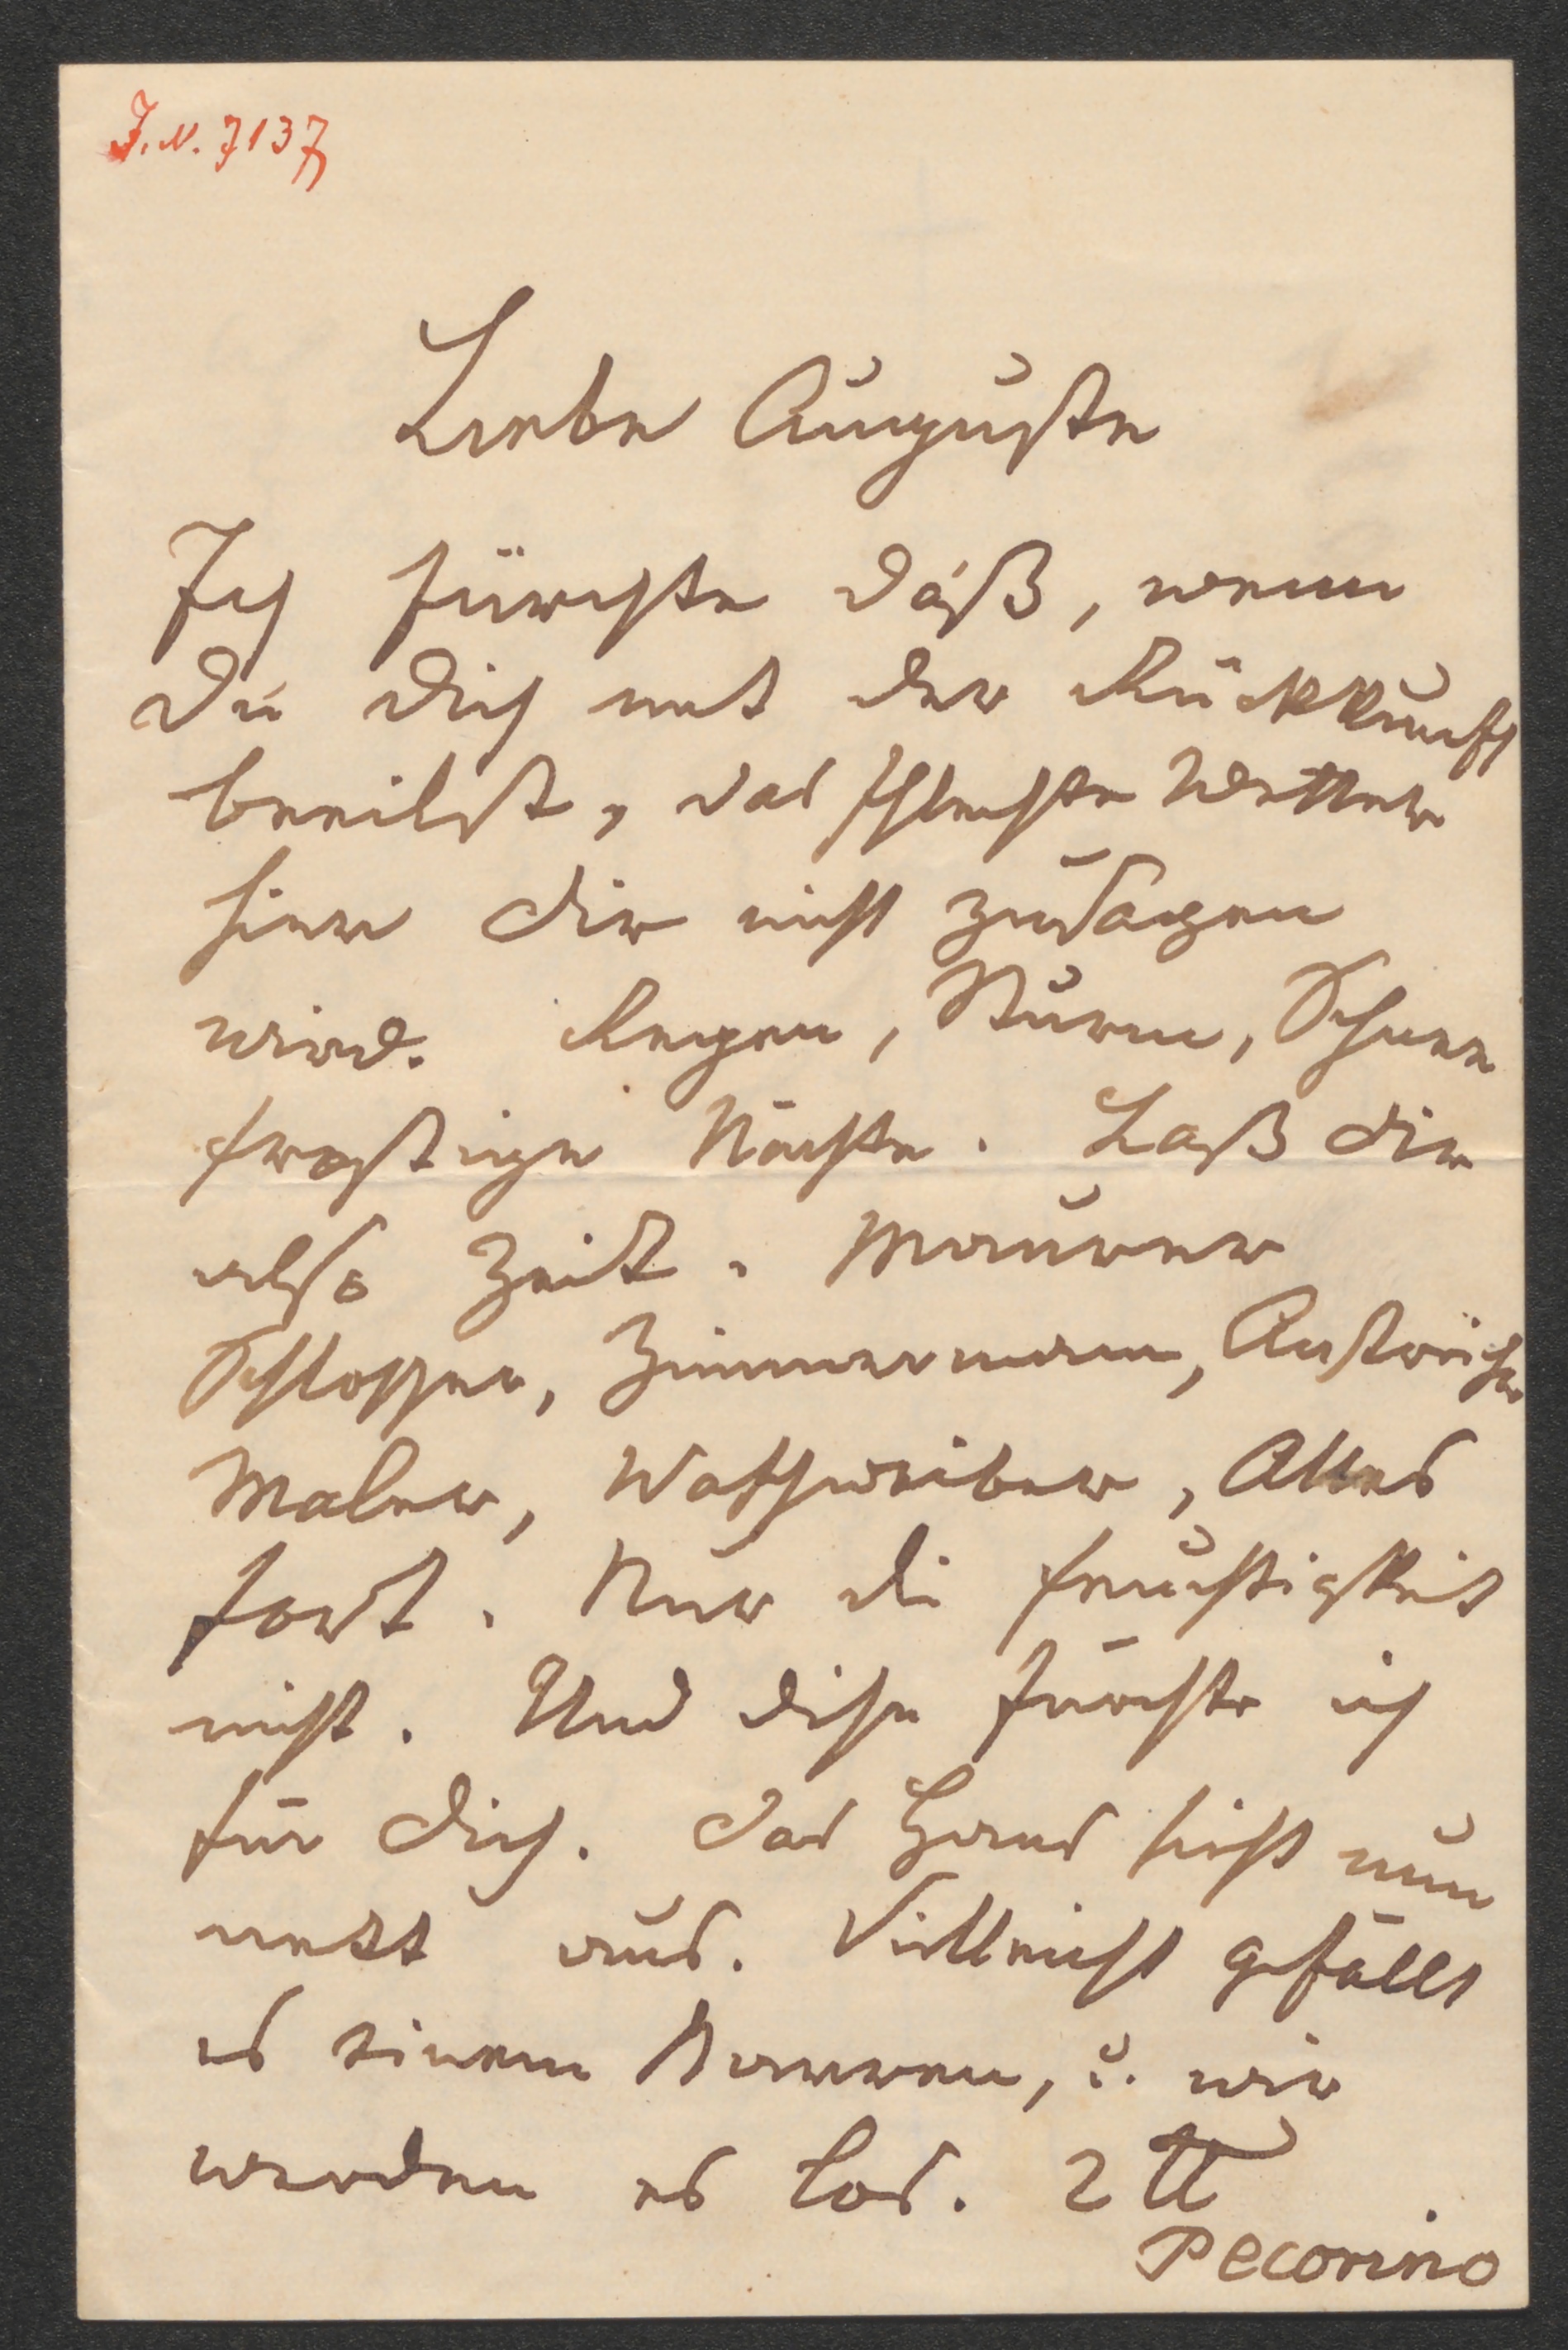 J. N. 7137
Liebe Auguste
Ich fürchte daß, wenn
Du Dich mit der Rückkunft
beeilst, das schlechte Wetter
hier dir nicht zusagen
wird. Regen, Sturm, Schnee
frostige Nächte. Laß dir
also Zeit. Maurer
Schlosser, Zimmermann, Anstreicher
Maler, Waschweiber, Alles
fort. Nur die Feuchtigkeit
nicht. Und diese fürchte ich
für Dich. Das Haus sieht nun
nett aus. Vielleicht gefällt
es einem Narren, u. wir
werden es los. 2 ℔
Pecorino